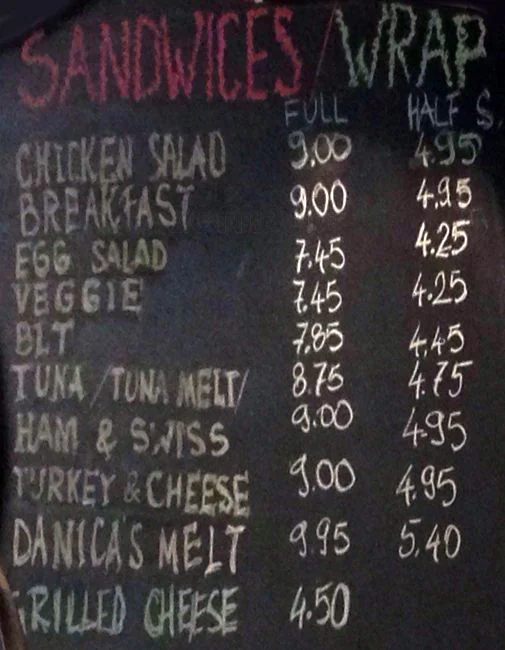 SANDWICES / WRAP
FULL HALF S.
CHICKEN SALAD 9.00 4.95
BREAKFAST 9.00 4.95
EGG SALAD 7.45 4.25
VEGGIE 7.45 4.25
BLT 7.85 4.45
TUNA /TUNA MELT/ 8.75 4.75
HAM & SWISS 9.00 4.95
TURKEY & CHEESE 9.00 4.95
DANICA'S MELT 9.95 5.40
GRILLED CHEESE 4.50